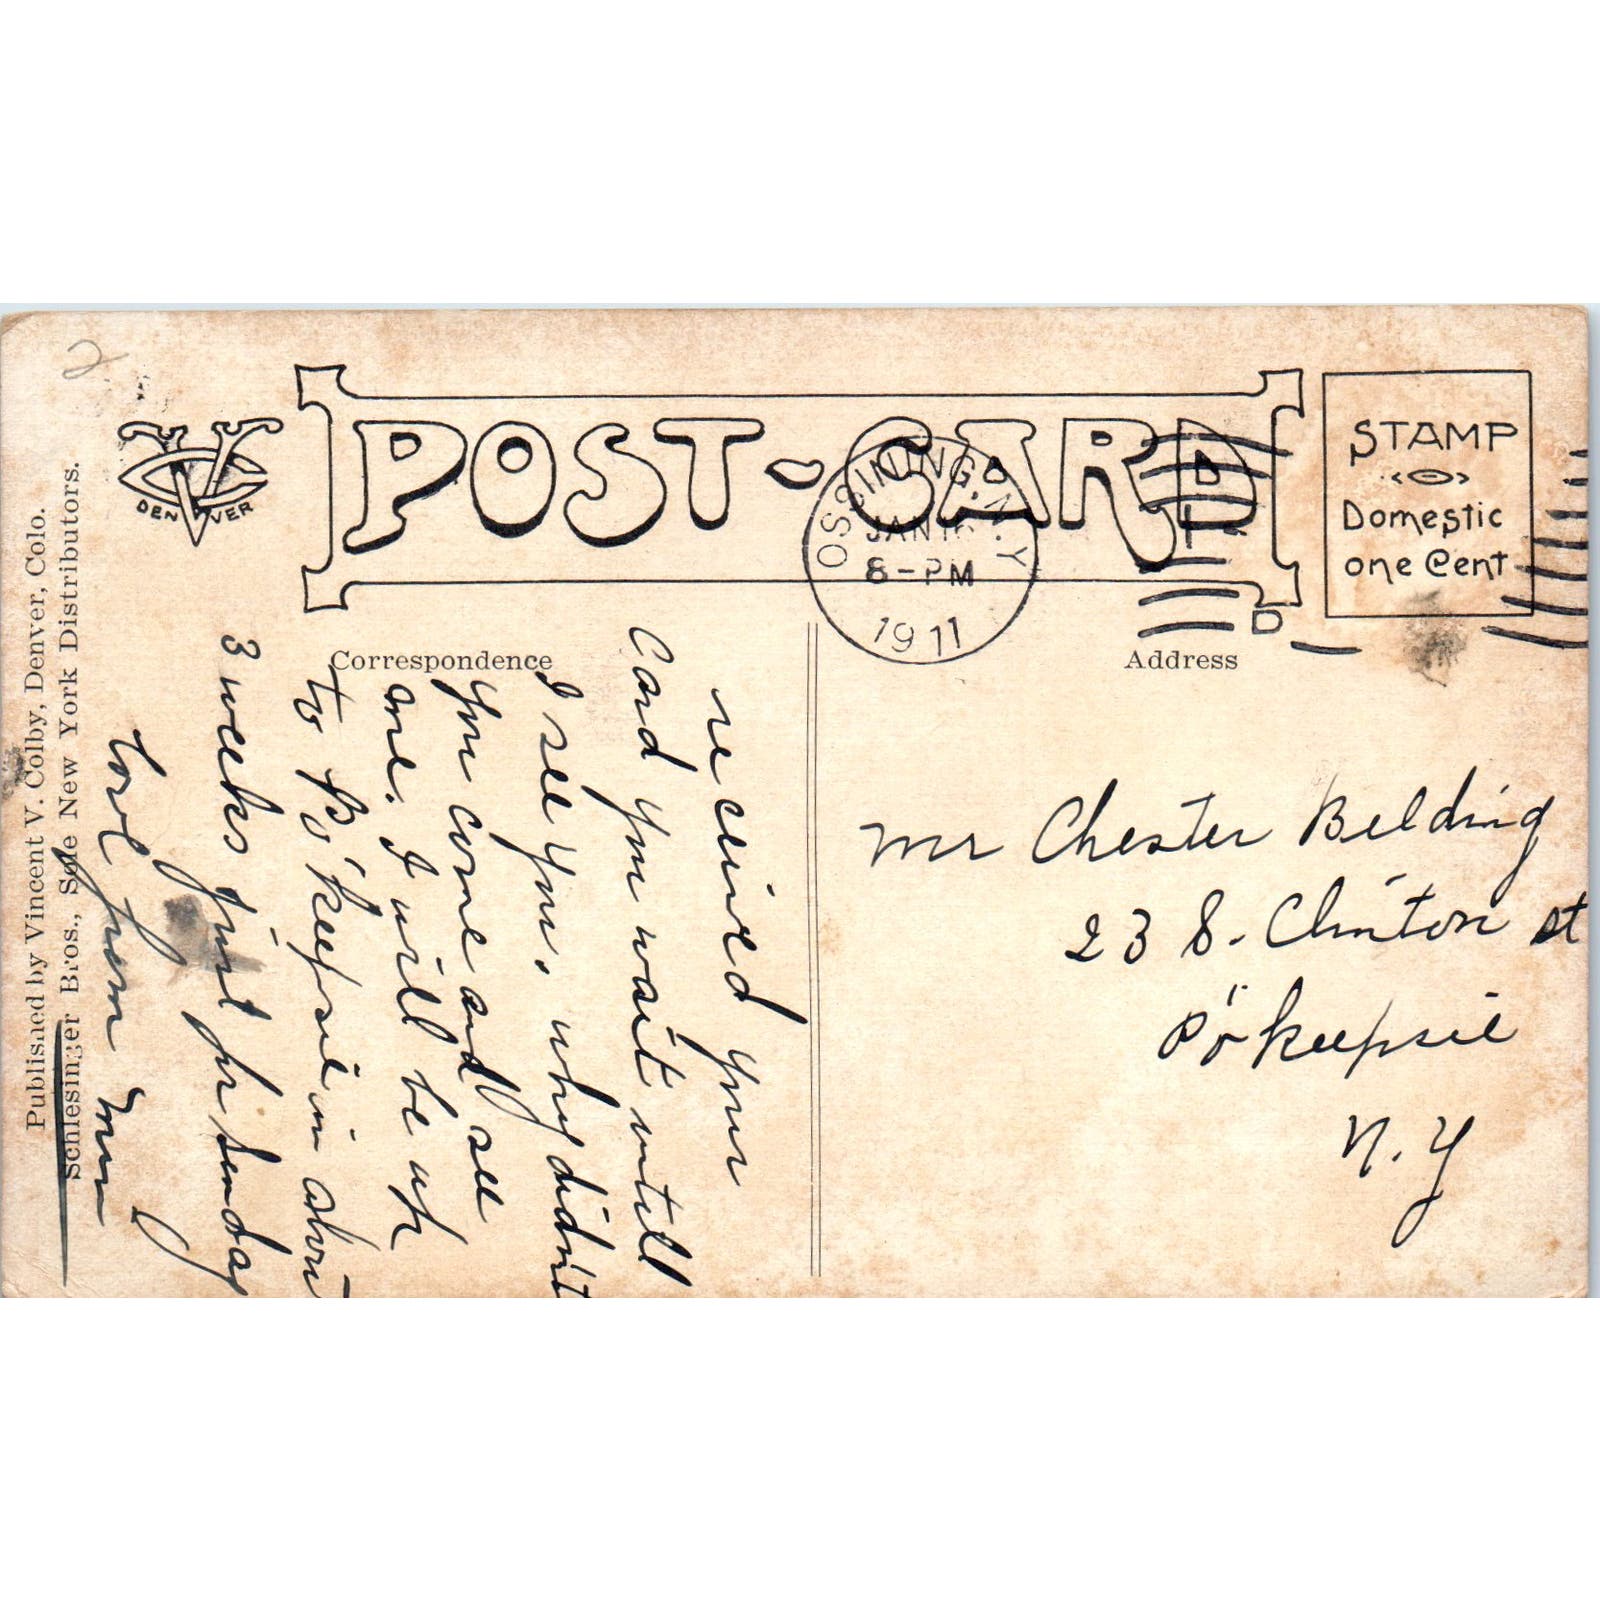 POST-CARD
VC
DENVER
STAMP
Domestic
one Cent
OSSINING, N.Y.
JAN
8-PM
1911
D
2
Correspondence
Address
recived your
Card you wait untill
I see you, why didn't
you come and see
me. I will be up
to Po'keepsie in about
3 weeks just for Sunday
Love from
Mr Chester Belding
23 S. Clinton st
Po'keepsie
N. Y
Published by Vincent V. Colby, Denver, Colo.
Schlesinger Bros., Sole New York Distributors.